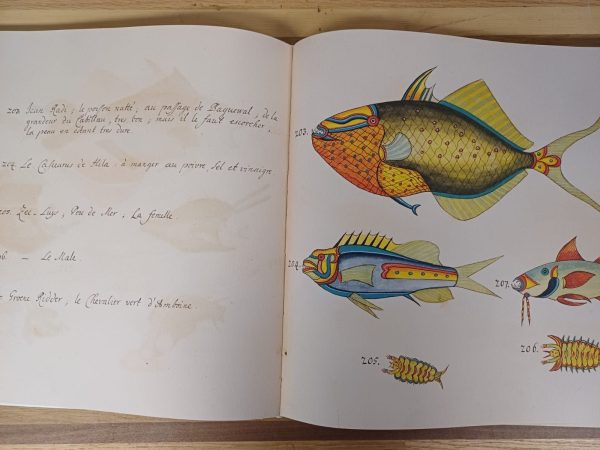 203 Ican Kadi ; le poisson natté, au passage de Baguewal, de la
grandeur du Cabillau, tres bon ; mais il le faut escorcher,
la peau en étant tres dure.
204. Le Casuarus de Hila : à manger au poivre, sel et vinaigre
205. Zee-Luys, Pou de Mer, La femelle.
06. — Le Male.
Groene Ridder, le Chevalier vert d'Amboine.
203.
204.
207.
205.
206.